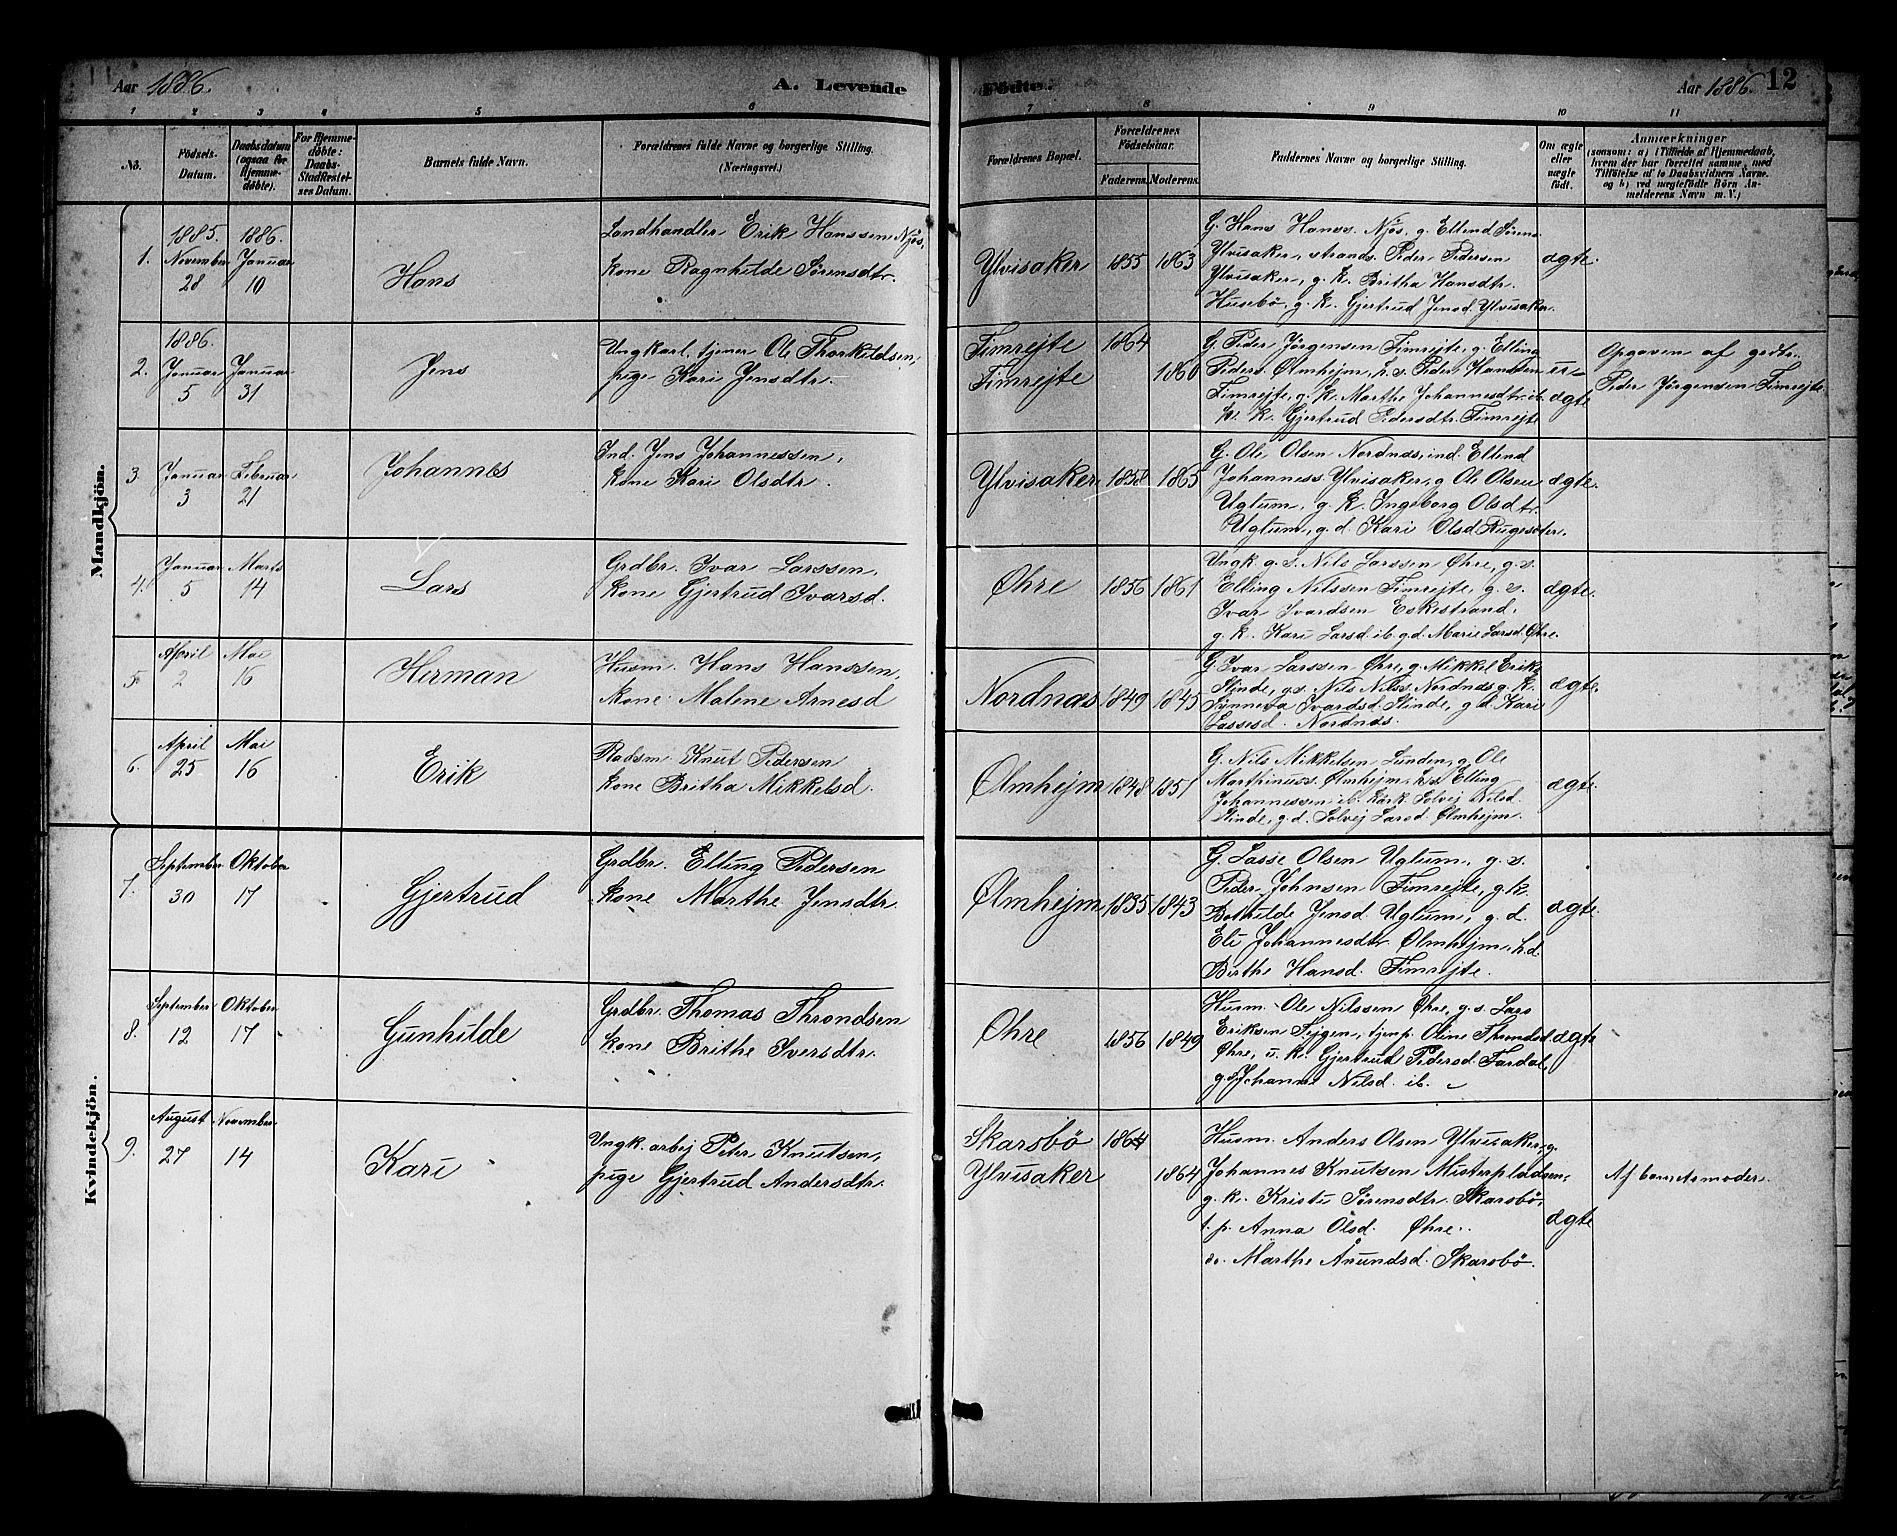 Aar 1886.
A. Levende Födte.
Aar 1886.
12
1 2 3 4 5 6 7 8 9 10 11
No.
Födsels-Datum.
Daabsdatum (ogsaa for Hjemmedöbte).
For Hjemmedöbte: Daabs-Stadfæstelses Datum.
Barnets fulde Navn.
Forældrenes fulde Navne og borgerlige Stilling. (Næringsvei.)
Forældrenes Bopæl.
Forældrenes Födselsaar.
Faderens. Moderens.
Faddernes Navne og borgerlige Stilling.
Om ægte eller uægte födt.
Anmærkninger
(saasom: a) i Tilfælde af Hjemmedaab, hvem der har forrettet samme, med Tilföielse af to Daabsvidners Navne. og b) ved uægtefödte Börn Anmelderens Navn m. V.)
Mandkjön.
1. 1885. November 28 1886. Januar 10 Hans
Landhandler Erik Hanssen Njøs,
kone Ragnhilde Sørensdtr.
Ylvisaker 1855 1863
G. Hans Hanss. Njøs, g. Ellend Sørens.
Ylvisaker, strands. Peder Pedersen
Ylvisaker, g. k. Britha Hansdtr.
Husebö, g. k. Gjertrud Jensd. Ylvisaker.
ægte.
2. 1886. Januar 5 Januar 31 Jens
Ungkarl, tjener Ole Thorkildsen,
pige Kari Jensdtr.
Fimrejte 1864
Fimrejte 1860
G. Peder Jörgensen Fimrejte, g. Elling
Peders. Ølmhejm, h. s. Peder Hanssen
Fimrejte, g. k. Marthe Johannesdtr. ib.
k. Gjertrud Pedersdtr. Fimrejte
uægte
Opgaven af grdbr.
Peder Jörgensen Fimrejte
3. Januar 3 Februar 21 Johannes
Ind. Jens Johannessen,
kone Kari Olsdtr.
Ylvisaker 1858 1865
G. Ole Olsen Nordnæs, ind. Ellend
Johanness. Ylvisaker, g Ole Olsen
Ugtum, g. k. Ingeborg Olsdtr.
Ugtum, g. d. Kari Olsd.
ægte.
4. Januar 5 Marts 14 Lars
Grdbr. Ivar Larssen,
kone Gjertrud Ivarsd.
Øhre 1856 1861
Ungk. g. s. Nils Larssen Øhre, g. s.
Elling Nilssen Fimrejte, g. s.
Ivar Ivardsen Eskestrand,
g. k. Kari Larsd. ib. g. d. Marie Larsd. Øhre.
ægte.
5. April 2 Mai 16 Herman
Husm. Hans Hanssen,
kone Malene Arnesd
Nordnæs 1849 1845
G. Ivar Larssen Øhre, g. Mikkel Eriks.
Slinde, g. s. Nils Nilss. Nordnæs g. k.
Sünneva Ivarsd. Slinde, g. d. Kari
Lassesd. Nordnæs.
ægte.
6. April 25 Mai 16 Erik
Pladsm. Knut Pedersen
kone Britha Mikkelsd.
Ølmhejm 1848 1851
G. Nils Mikkelsen Lunden, g. Ole
Marthinuss. Ølmhejm, h. s. Elling
Johannessen ib. Solvej Nilsd.
Slinde, g. d. Solvej Larsd. Ølmhejm.
ægte.
Kvindekjön.
7. September 30 Oktober 17 Gjertrud
Grdbr. Elling Pedersen
kone Marthe Jensdtr.
Ølmhejm 1835 1843
G. Lasse Olsen Ugtum, g. s.
Peder Johnsen Fimrejte, g. k.
Bothilde Jensd. Ugtum, g. d.
Eli Johannesdtr. Ølmhejm, h. d.
Birthe Hansd. Fimrejte.
ægte.
8. September 12 Oktober 17 Gunhilde
Grdbr. Thomas Throndsen
kone Brithe Iversdtr.
Øhre 1856 1849
Husm. Ole Nilssen Øhre, g. s. Lars
Eriksen Fejgen, tjenp. Oline Throndsd.
Øhre, u. k. Gjertrud Pedersd. Fardal,
g. d. Johanne Nilsd. ib.
ægte
9. August 27 November 14 Kari
Ungk. arbej. Peter Knutsen,
pige Gjertrud Andersdtr.
Skarsbö 1864
Ylvisaker 1864
Husm. Anders Olsen Ylvisaker, g.
Johannes Knutsen
g. k. Kristi Sørensdtr. Skarsbö,
t. p. Anna Olsd. Øhre.
do. Marthe Anundsd. Skarsbö.
ægte
Af barnets moder.